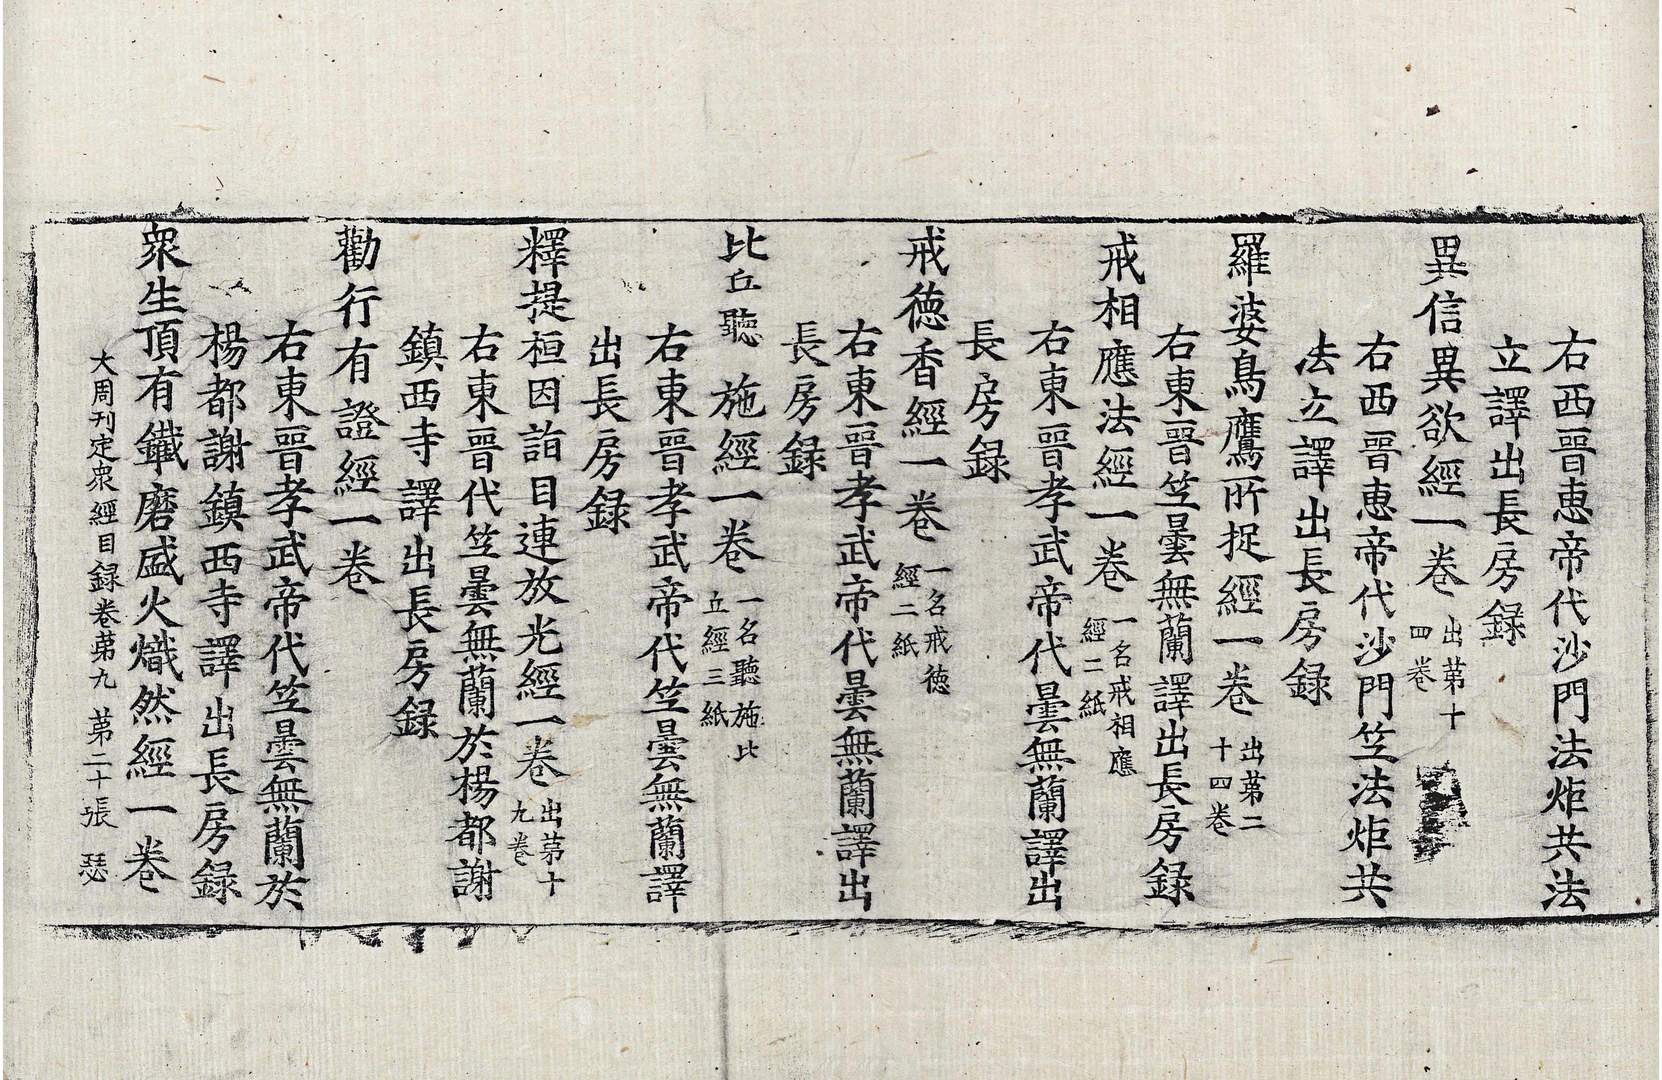 右西晉惠帝代沙門法炬共法
立譯出長房録
異信異欲經一卷 出苐十
四卷
右西晉惠帝代沙門笁法炬共
法立譯出長房録
羅婆鳥鷹所捉經一卷 出苐二
十四卷
右東晉笁曇無蘭譯出長房録
戒相應法經一卷 一名戒相應
經二紙
右東晉孝武帝代曇無蘭譯出
長房録
戒德香經一卷 一名戒德
經二紙
右東晉孝武帝代曇無蘭譯出
長房録
比丘聽施經一卷 一名聽施比
丘經三紙
右東晉孝武帝代笁曇無蘭譯
出長房録
釋提桓因詣目連放光經一卷 出苐十
九卷
右東晉代笁曇無蘭於楊都謝
鎮西寺譯出長房録
勸行有證經一卷
右東晉孝武帝代笁曇無蘭於
楊都謝鎮西寺譯出長房録
衆生頂有鐵磨盛火熾然經一卷
大周刊定衆經目録卷苐九 苐二十張 瑟